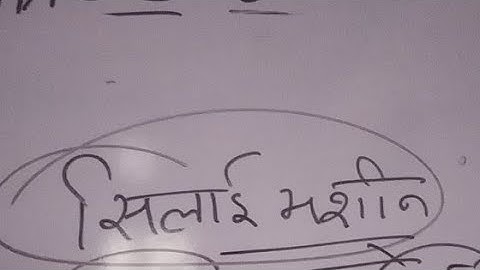 सिलाई मशीन